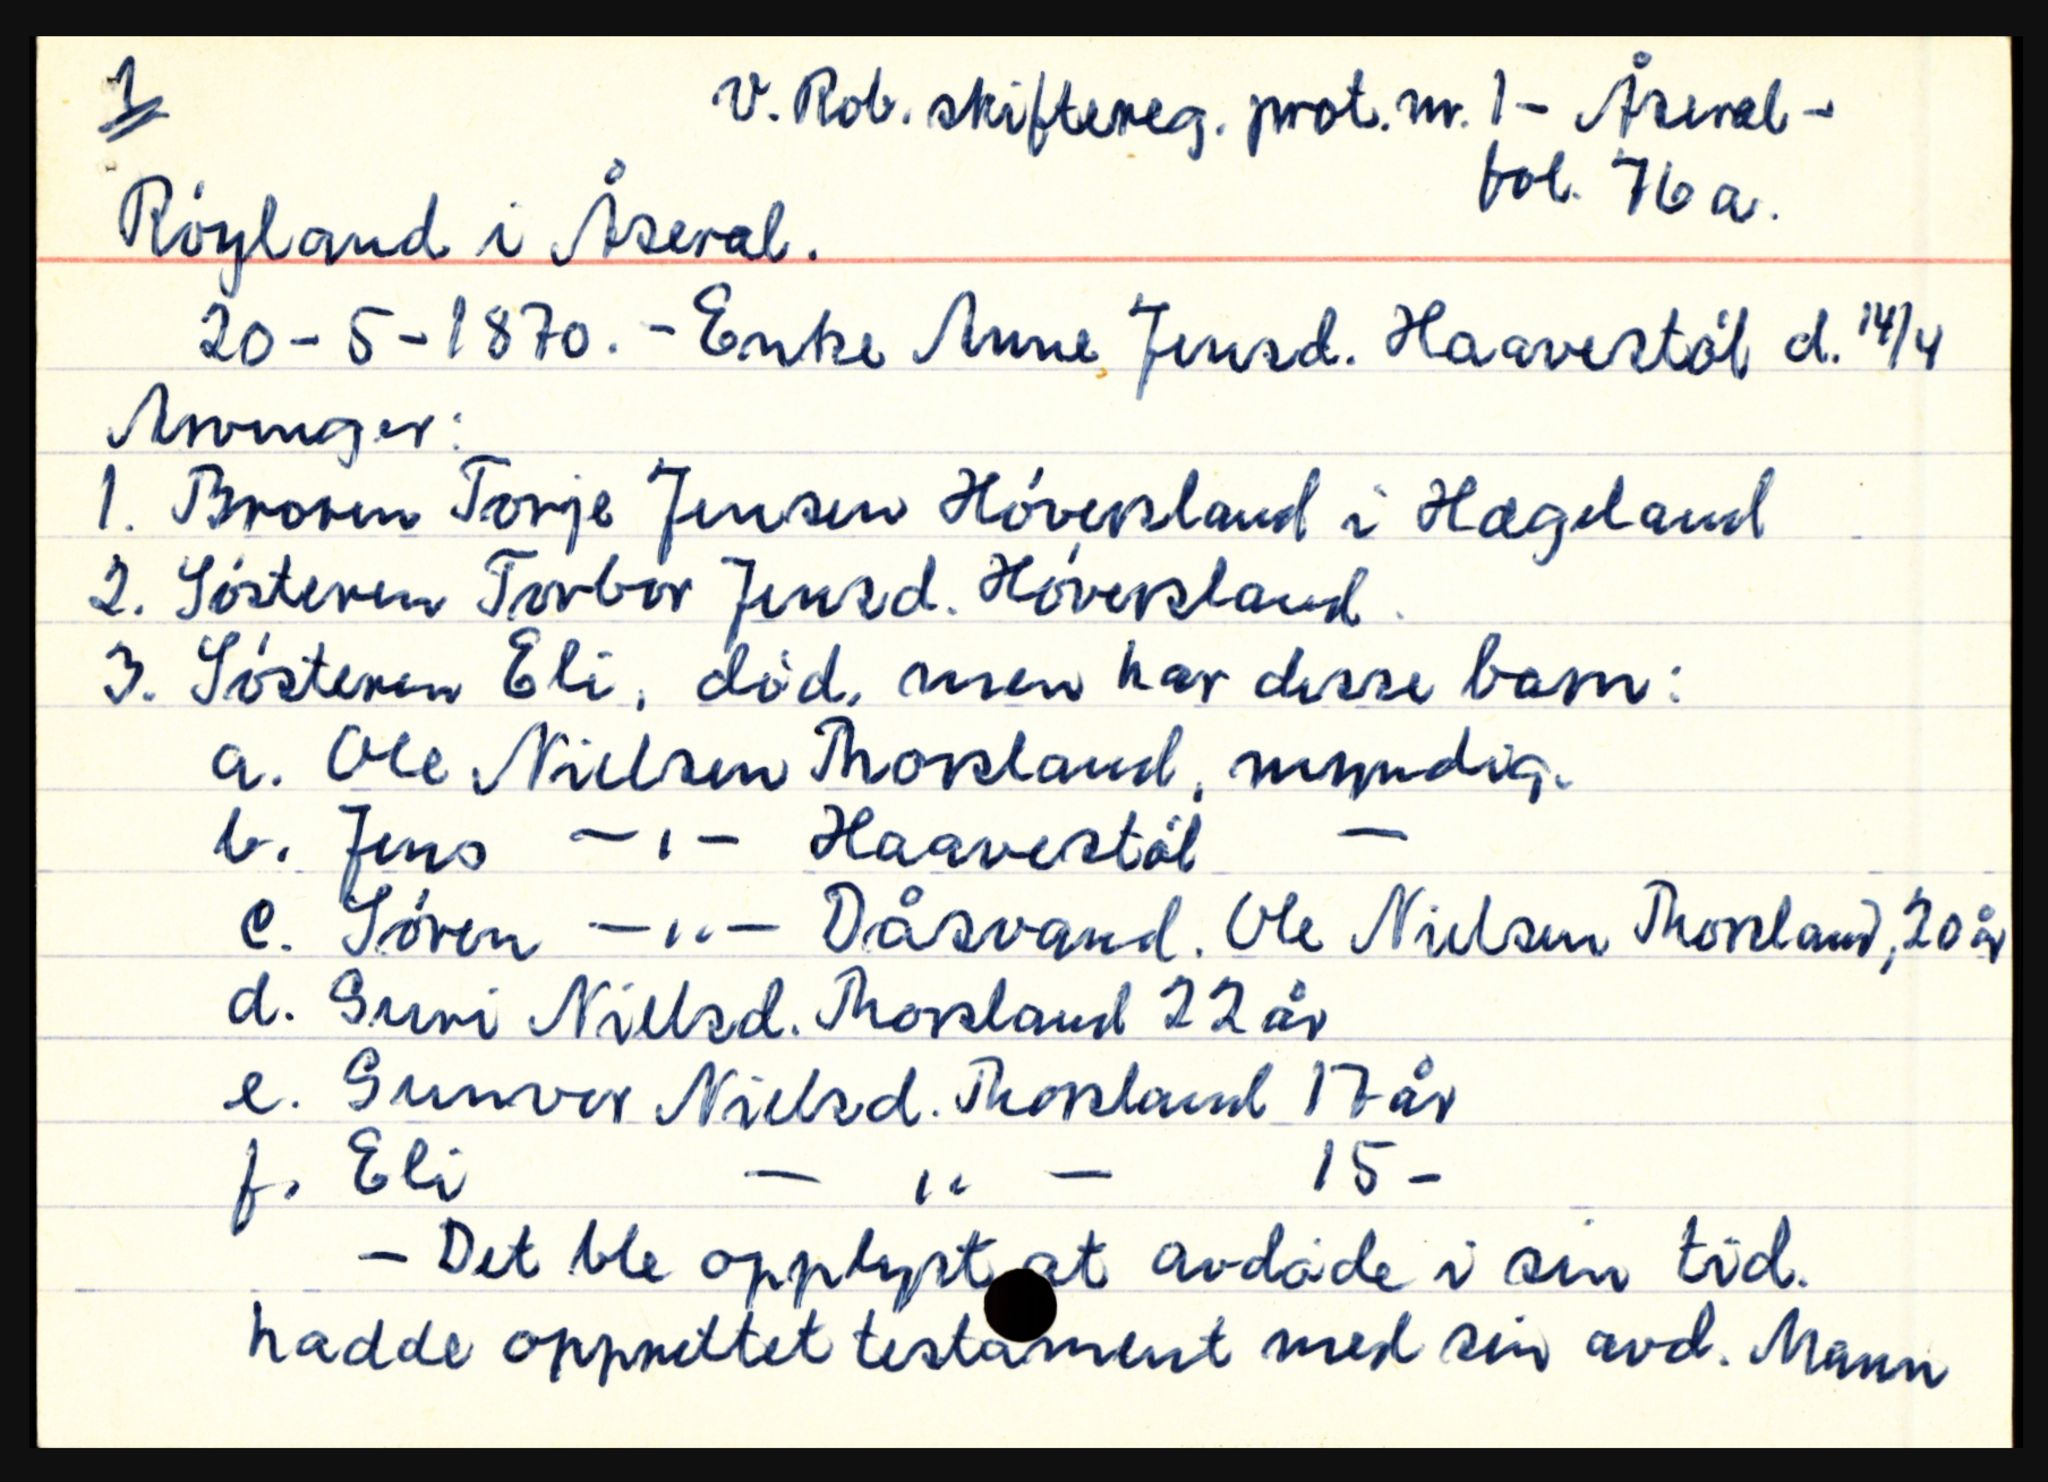 1
V. Rob. skiftereg. prot. nr. 1 - Åseral -
fol. 76 a.
Röyland i Åseral.
20 - 5 - 1870. - Enke Anne Jensd. Haavestöl d. 14/4
Arvinger:
1. Broren Torje Jensen Höversland i Hægeland
2. Sösteren Torbor Jensd. Höversland.
3. Sösteren Eli, död, men har disse barn:
a. Ole Nielsen Thorsland, myndig.
b. Jens - " - Haavestöl -
c. Sören - " - Dåsvand. Ole Nielsen Thorsland, 20 år
d. Guri Nielsd. Thorsland 22 år
e. Gunvor Nielsd. Thorsland 17 år
f. Eli - " - 15 -
- Det ble opplyst at avdöde i sin tid.
hadde opprettet testament med sin avd. Mann